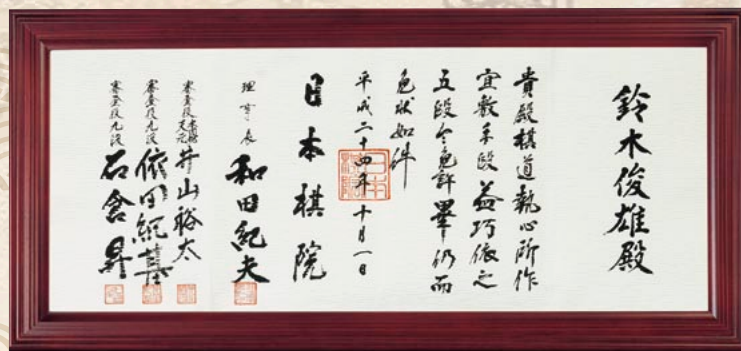 鈴木俊雄殿
貴殿棋道執心所作
宜敷手段益巧依之
五段令免許畢仍而
免状如件
平成二十四年十月一日
日本棋院
理事長 和田紀夫
審査役 天元 井山裕太
審査役九段 依田紀基
審査役九段 石倉昇